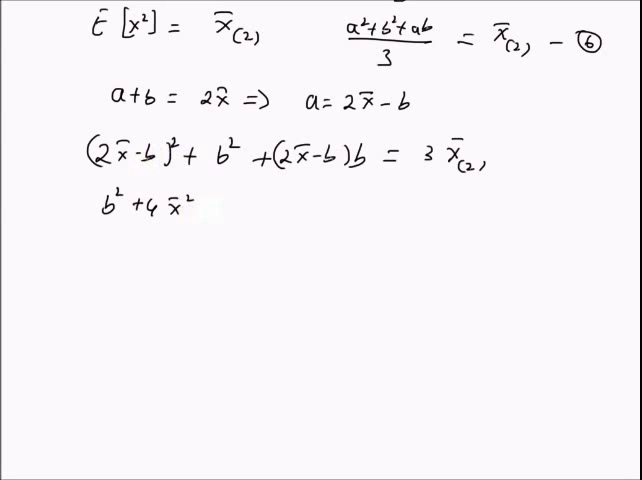 E [x²] = x̄₍₂₎   (a²+b²+ab)/3 = x̄₍₂₎ - ⑥
a+b = 2x̄ => a= 2x̄ - b
(2x̄-b)² + b² +(2x̄-b)b = 3 x̄₍₂₎
b² +4 x̄²